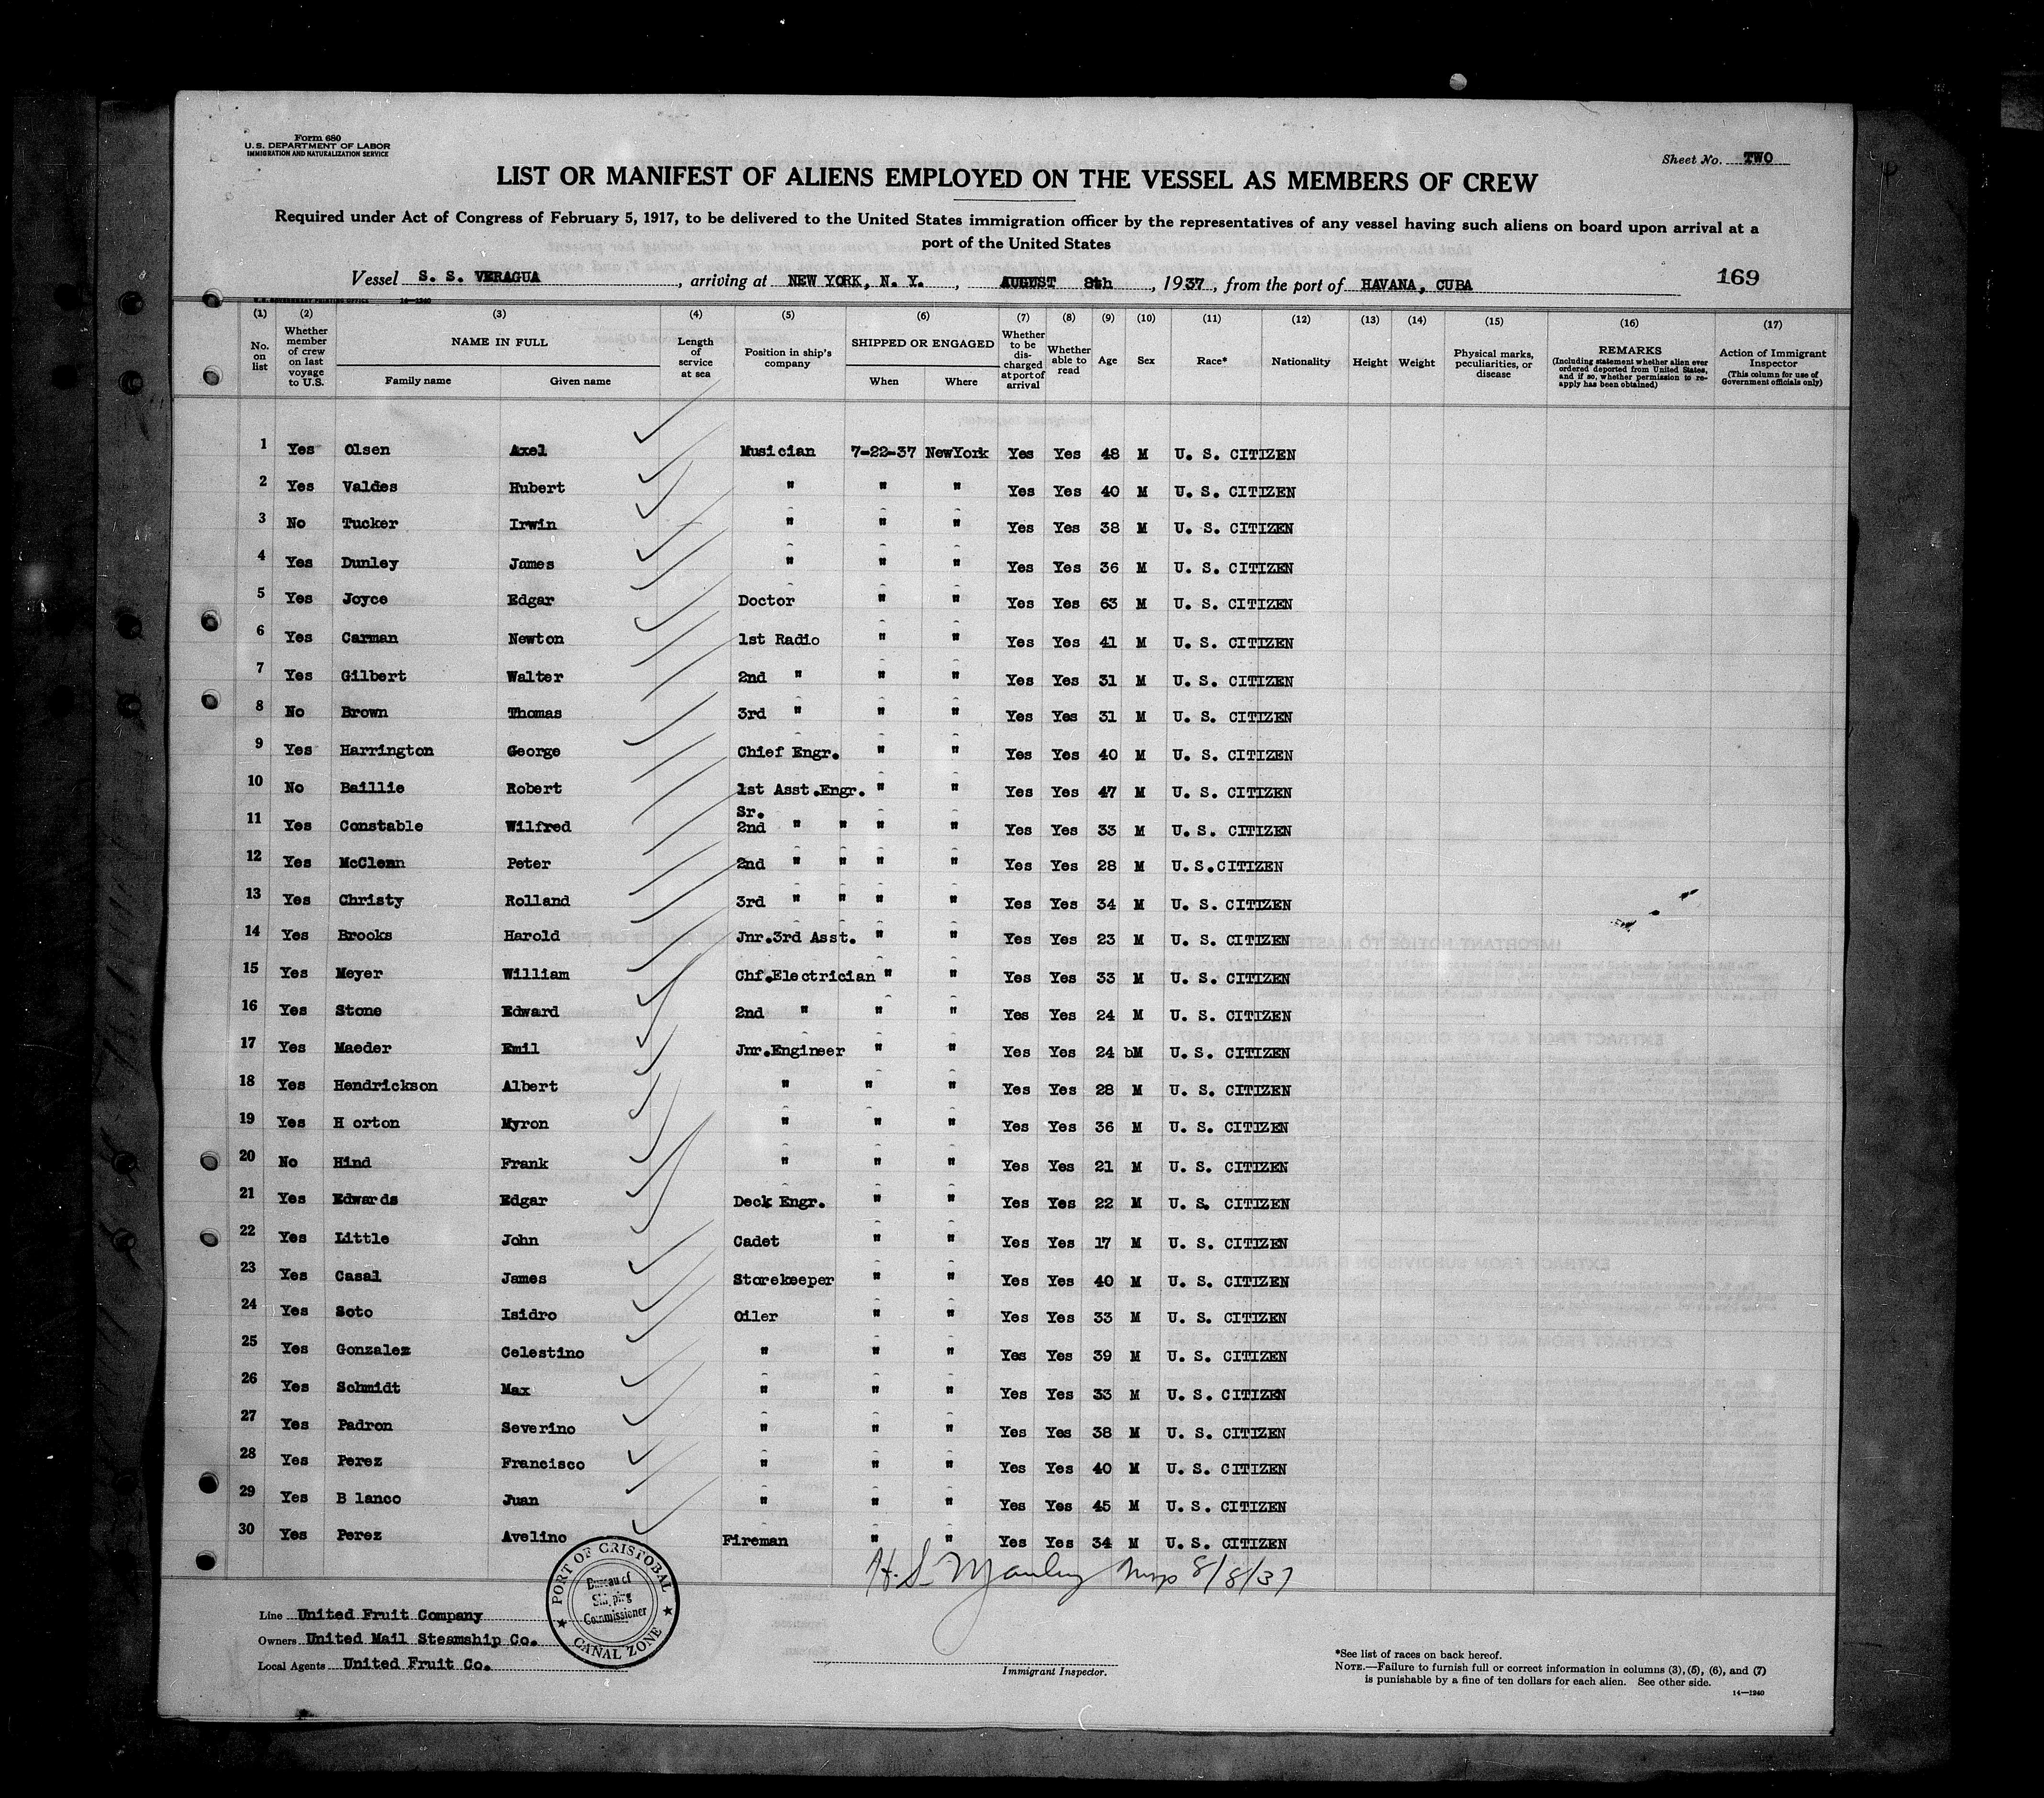 Form 680
U. S. DEPARTMENT OF LABOR
IMMIGRATION AND NATURALIZATION SERVICE
Sheet No. TWO
LIST OR MANIFEST OF ALIENS EMPLOYED ON THE VESSEL AS MEMBERS OF CREW
Required under Act of Congress of February 5, 1917, to be delivered to the United States immigration officer by the representatives of any vessel having such aliens on board upon arrival at a
port of the United States
Vessel S. S. VERAGUA, arriving at NEW YORK, N. Y., AUGUST 8th, 1937, from the port of HAVANA, CUBA 169
U. S. GOVERNMENT PRINTING OFFICE 14—1240
(1) (2) (3) (4) (5) (6) (7) (8) (9) (10) (11) (12) (13) (14) (15) (16) (17)
No. on list Whether member of crew on last voyage to U.S. NAME IN FULL Family name Given name Length of service at sea Position in ship's company SHIPPED OR ENGAGED When Where Whether to be discharged at port of arrival Whether able to read Age Sex Race* Nationality Height Weight Physical marks, peculiarities, or disease REMARKS (Including statement whether alien ever ordered deported from United States, and if so, whether permission to re-apply has been obtained) Action of Immigrant Inspector (This column for use of Government officials only)
1 Yes Olsen Axel Musician 7-22-37 NewYork Yes Yes 48 M U. S. CITIZEN
2 Yes Valdes Hubert " " " Yes Yes 40 M U. S. CITIZEN
3 No Tucker Irwin " " " Yes Yes 38 M U. S. CITIZEN
4 Yes Dunley James " " " Yes Yes 36 M U. S. CITIZEN
5 Yes Joyce Edgar Doctor " " Yes Yes 63 M U. S. CITIZEN
6 Yes Carman Newton 1st Radio " " Yes Yes 41 M U. S. CITIZEN
7 Yes Gilbert Walter 2nd " " " Yes Yes 31 M U. S. CITIZEN
8 No Brown Thomas 3rd " " " Yes Yes 31 M U. S. CITIZEN
9 Yes Harrington George Chief Engr. " " Yes Yes 40 M U. S. CITIZEN
10 No Baillie Robert 1st Asst.Engr. " " Yes Yes 47 M U. S. CITIZEN
11 Yes Constable Wilfred Sr. 2nd " " " " Yes Yes 33 M U. S. CITIZEN
12 Yes McClean Peter 2nd " " " " Yes Yes 28 M U.S.CITIZEN
13 Yes Christy Rolland 3rd " " " " Yes Yes 34 M U. S. CITIZEN
14 Yes Brooks Harold Jnr.3rd Asst. " " Yes Yes 23 M U. S. CITIZEN
15 Yes Meyer William Chf.Electrician " " Yes Yes 33 M U. S. CITIZEN
16 Yes Stone Edward 2nd " " " Yes Yes 24 M U. S. CITIZEN
17 Yes Maeder Emil Jnr.Engineer " " Yes Yes 24 bM U. S. CITIZEN
18 Yes Hendrickson Albert " " " Yes Yes 28 M U. S. CITIZEN
19 Yes H orton Myron " " " Yes Yes 36 M U. S. CITIZEN
20 No Hind Frank " " " Yes Yes 21 M U. S. CITIZEN
21 Yes Edwards Edgar Deck Engr. " " Yes Yes 22 M U. S. CITIZEN
22 Yes Little John Cadet " " Yes Yes 17 M U. S. CITIZEN
23 Yes Casal James Storekeeper " " Yes Yes 40 M U. S. CITIZEN
24 Yes Soto Isidro Oiler " " Yes Yes 33 M U. S. CITIZEN
25 Yes Gonzalez Celestino " " " Yes Yes 39 M U. S. CITIZEN
26 Yes Schmidt Max " " " Yes Yes 33 M U. S. CITIZEN
27 Yes Padron Severino " " " Yes Yes 38 M U. S. CITIZEN
28 Yes Perez Francisco " " " Yes Yes 40 M U. S. CITIZEN
29 Yes B lanco Juan " " " Yes Yes 45 M U. S. CITIZEN
30 Yes Perez Avelino Fireman " " Yes Yes 34 M U. S. CITIZEN
H. S. 8/8/37
PORT OF CRISTOBAL
Bureau of
Shipping
Commissioner
CANAL ZONE
Line United Fruit Company
Owners United Mail Steamship Co.
Local Agents United Fruit Co.
Immigrant Inspector.
*See list of races on back hereof.
NOTE.—Failure to furnish full or correct information in columns (3), (5), (6), and (7)
is punishable by a fine of ten dollars for each alien. See other side.
14—1240